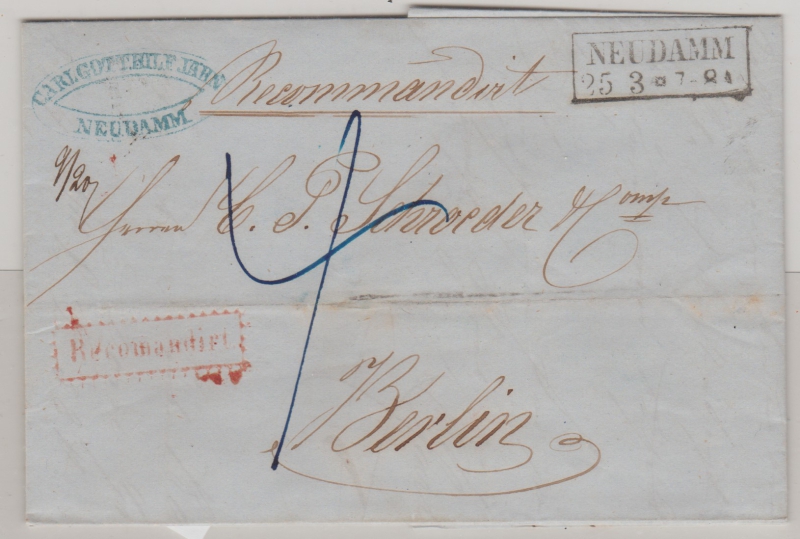 CARL GOTTHILF JAHN
NEUDAMM
Recommandirt
NEUDAMM
25 3 * 7-8 A
9/20
Herren C. P. Schroeder & Comp
4
Recomandirt
Berlin